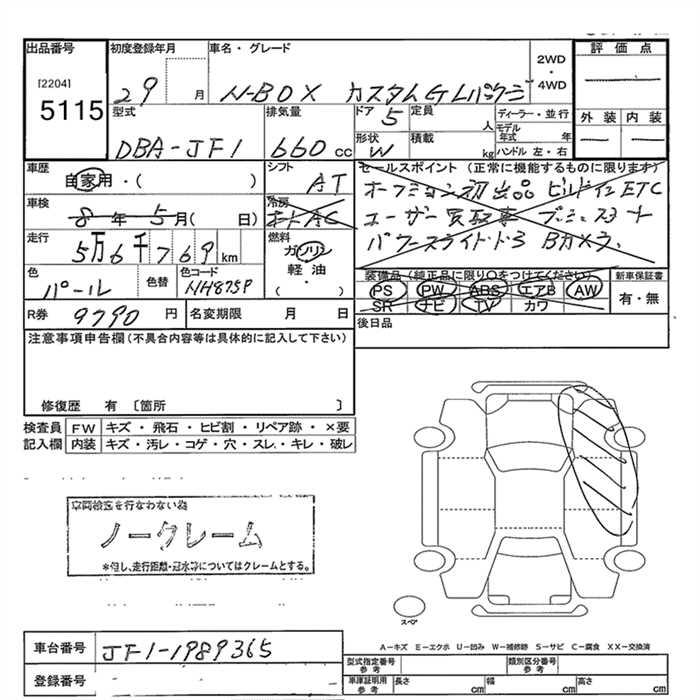 出品番号
[2204]
5115
初度登録年月
29 月
車名・グレード
N-BOX カスタムG Lパッケージ
2WD
・
4WD
評価点
外装 内装
型式
DBA-JF1
排気量
660 cc
ドア 5
定員 人
形状 W
積載 kg
ディーラー・並行
モデル年式 年
ハンドル 左・右
車歴
自家用・( )
シフト
AT
車検
8年 5月( 日)
冷房
オートAC
走行
5万6千769km
燃料
ガソリン
軽油
( ・ )
色
パール
色替
色コード
NH875P
セールスポイント (正常に機能するものに限ります)
オークション初出品 ビルドインETC
ユーザー買取車 プッシュスタート
パワースライドドア Bカメラ
装備品 (純正品に限り○をつけてください)
PS PW ABS エアB AW
SR ナビ TV カワ
新車保証書
有・無
R券
9790 円
名変期限 月 日
後日品
注意事項申告欄 (不具合内容等は具体的に記入して下さい)
修復歴 有 〔箇所 〕
検査員
記入欄
FW キズ・飛石・ヒビ割・リペア跡・×要
内装 キズ・汚レ・コゲ・穴・スレ・キレ・破レ
車両検査を行なわない為
ノークレーム
*但し、走行距離・冠水等についてはクレームとする。
スペア
A-キズ E-エクボ U-凹み W-補修跡 S-サビ C-腐食 XX-交換済
車台番号
JF1-1989365
登録番号
型式指定番号
参考
類別区分番号
参考
車庫証明用
参考
長さ cm
幅 cm
高さ cm